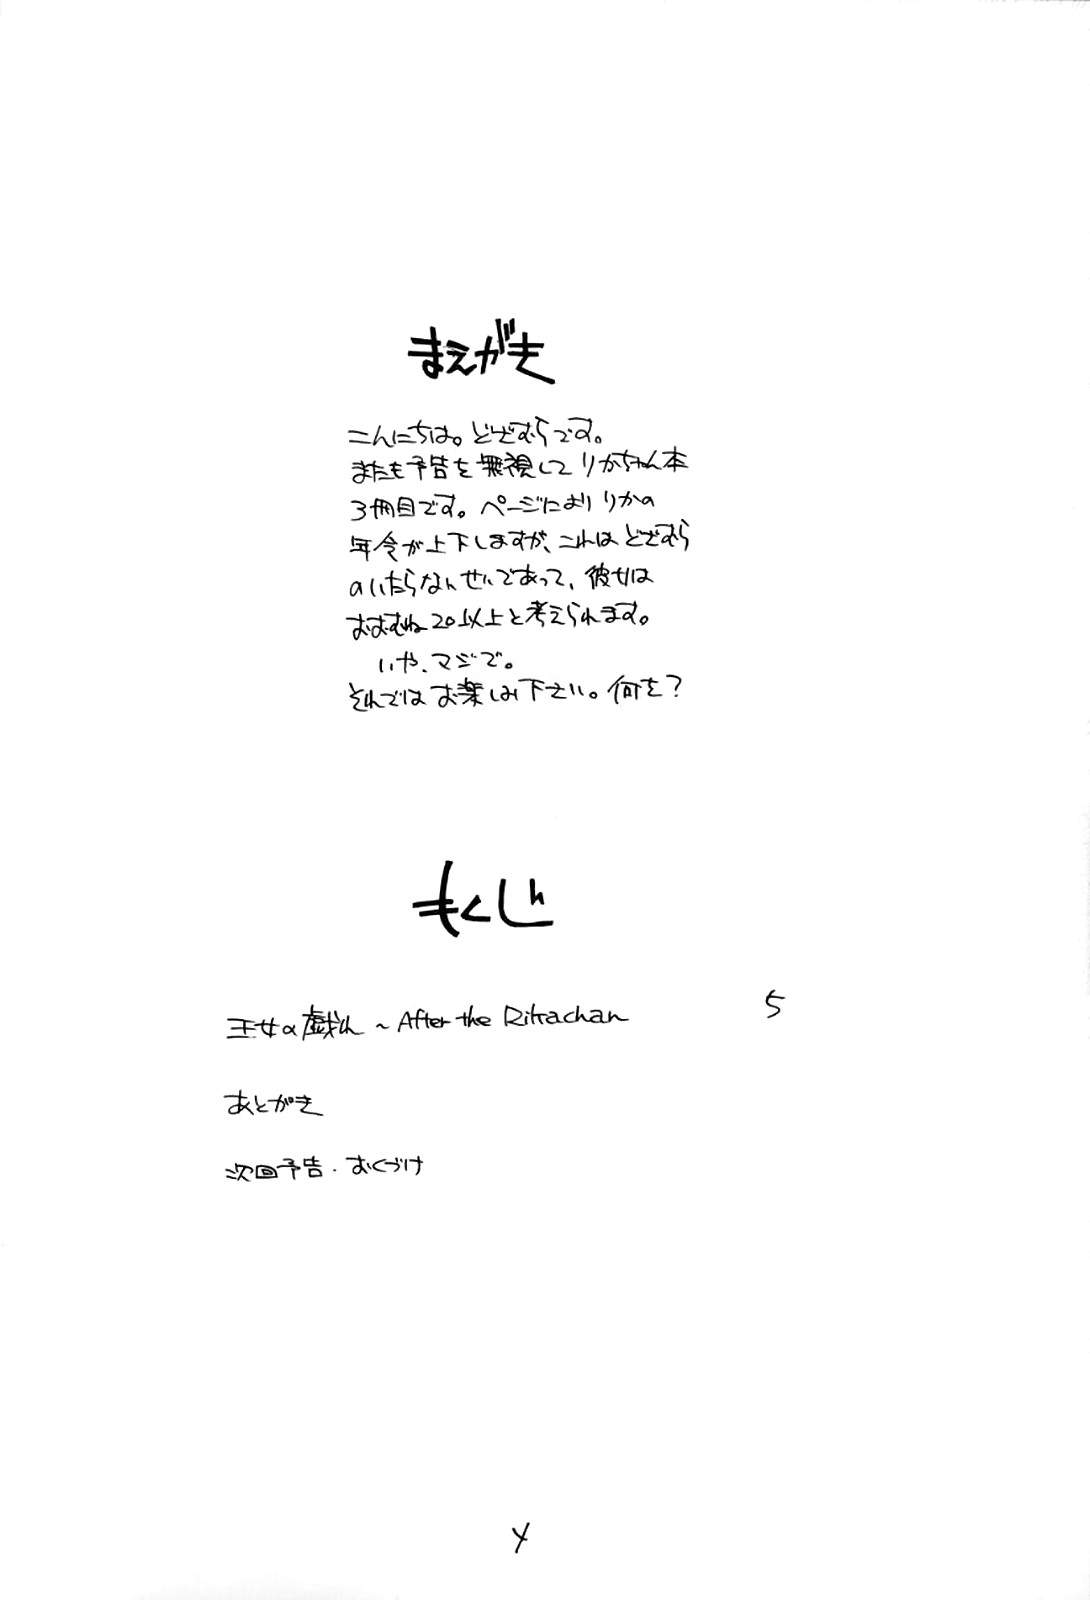 まえがき
こんにちは。どざむらです。
またも予告を無視して りかちゃん本
3冊目です。ページにより りかの
年令が上下しますが、これは どざむら
のいたらないせいであって、彼女は
おおむね20以上と考えられます。
いや、マジで。
それではお楽しみ下さい。何を?
もくじ
王女の戯れ ~After the Rikachan 5
あとがき
次回予告・おくづけ
4